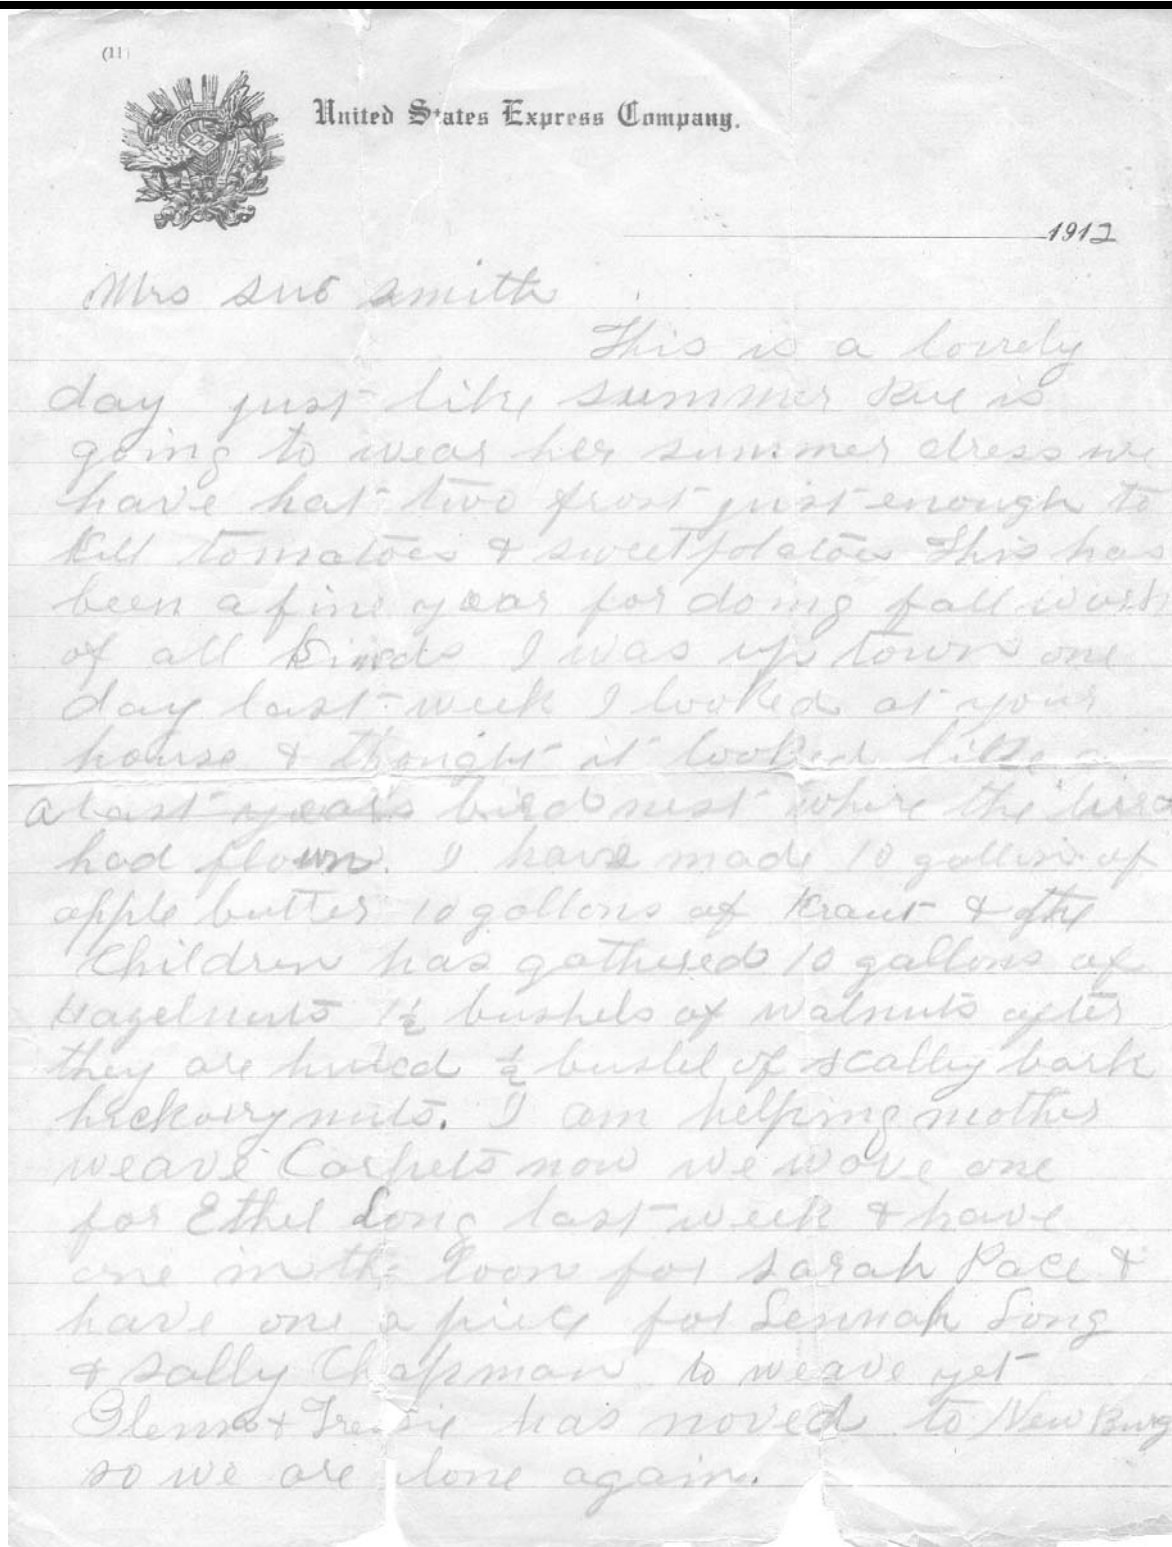 (11)
United States Express Company.
1912
Mrs Sue Smith
This is a lovely
day just like summer is
going to wear her summer dress we
have hat two frost just enough to
kill tomatoes & sweet potatoes This has
been a fine year for doing fall work
of all kinds I was up town one
day last week I looked at your
house & thought it looked like
a last years bird nest where the bird
had flown. I have made 10 gallons of
apple butter 10 gallons of Kraut & the
Children has gathered 10 gallons of
Hazelnuts 1½ bushels of walnuts after
they are hulled ½ bushel of scalley bark
hickory nuts. I am helping mother
weave Carpets now we wove one
for Ethel Long last week & have
one in the loom for Sarah Pace &
have one a piece for Lennah Long
& Sally Chapman to weave yet
Glenn & has moved to New Burg
so we are alone again.